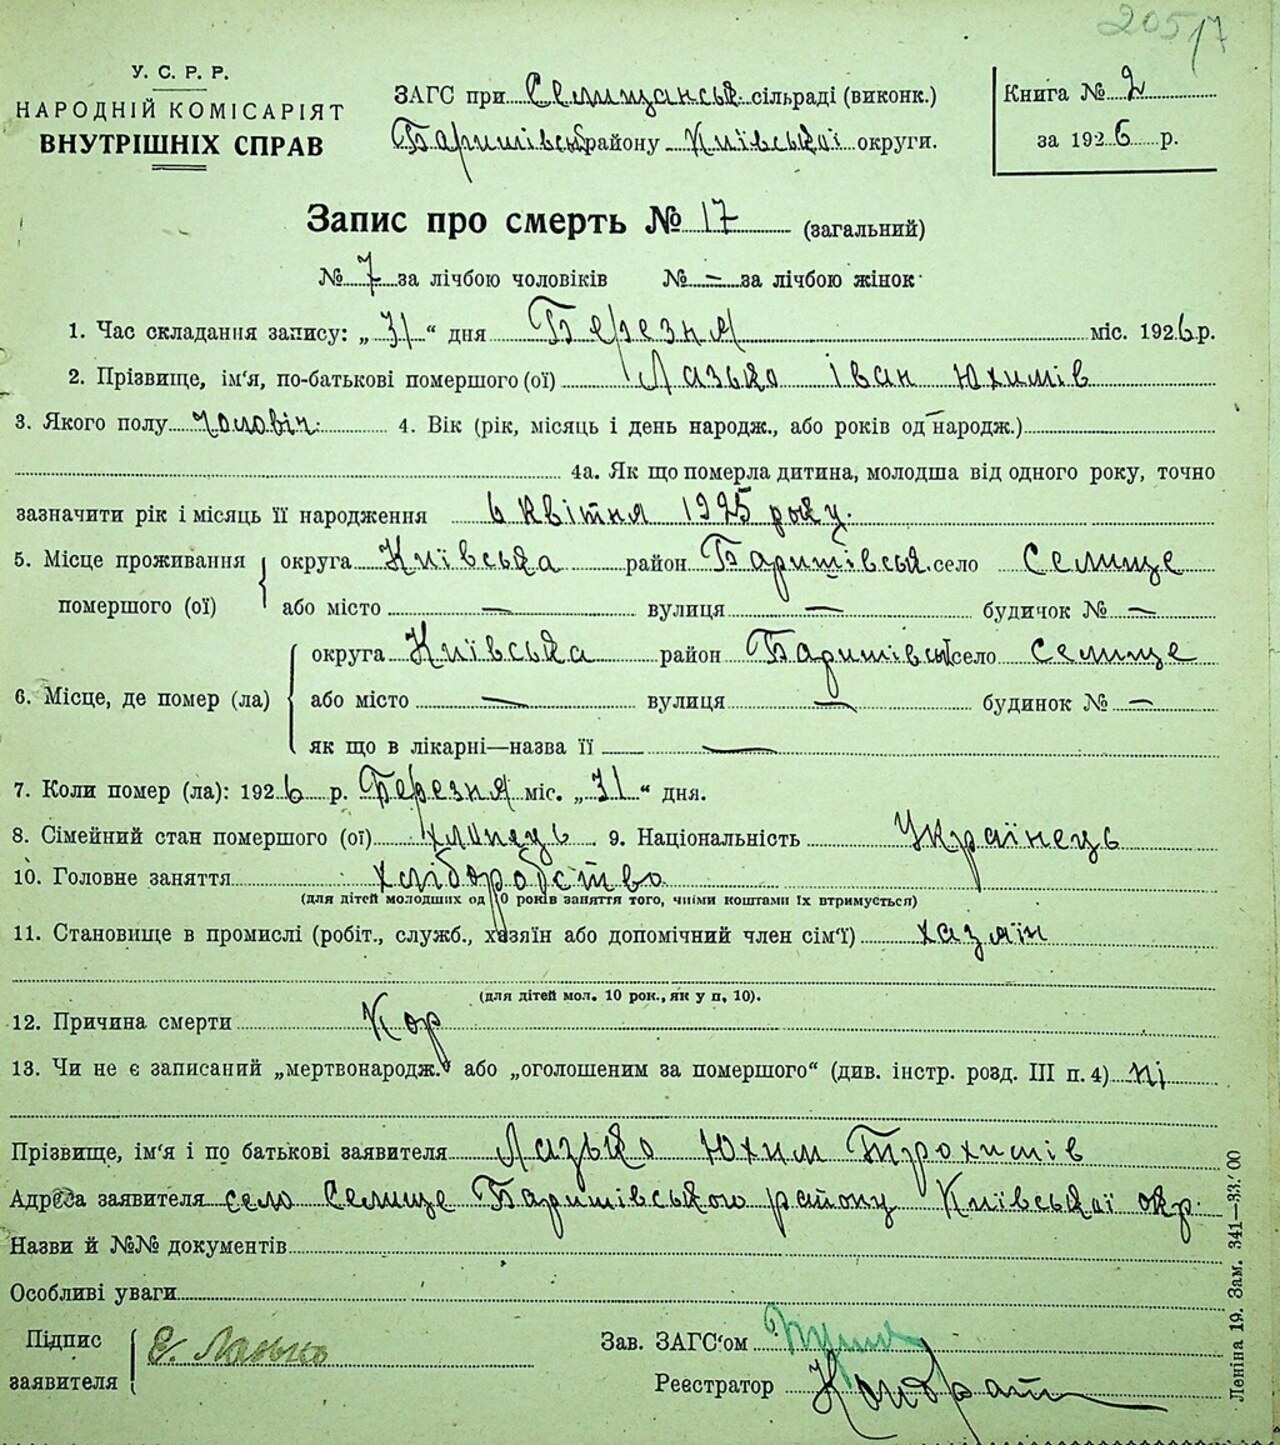 205/7
У. С. Р. Р.
НАРОДНІЙ КОМІСАРІЯТ
ВНУТРІШНІХ СПРАВ
ЗАГС при Селищанськ. сільраді (виконк.)
Баришівськ району Київської округи.
Книга № 2
за 1926 р.
Запис про смерть № 17 (загальний)
№ 7 за лічбою чоловіків № — за лічбою жінок
1. Час складання запису: „31“ дня Березня міс. 1926 р.
2. Прізвище, ім‘я, по-батькові помершого (ої) Лазько Іван Юхимів
3. Якого полу чоловіч. 4. Вік (рік, місяць і день народж., або років од народж.) —
4а. Як що померла дитина, молодша від одного року, точно
зазначити рік і місяць її народження 6 квітня 1925 року.
5. Місце проживання помершого (ої) округа Київська район Баришівськ. село Селище
або місто — вулиця — будичок № —
6. Місце, де помер (ла) округа Київська район Баришівськ село Селище
або місто — вулиця — будинок № —
як що в лікарні—назва її —
7. Коли помер (ла): 1926 р. Березня міс. „31“ дня.
8. Сімейний стан помершого (ої) хлопець. 9. Національність Українець
10. Головне заняття хліборобство
(для дітей молодших од 10 років заняття того, чиїми коштами їх втримується)
11. Становище в промислі (робіт., служб., хазяїн або допомічний член сім‘ї) хазяїн
(для дітей мол. 10 рок., як у п, 10).
12. Причина смерти Кор
13. Чи не є записаний „мертвонародж.“ або „оголошеним за помершого“ (див. інстр. розд. III п. 4) ні
Прізвище, ім‘я і по батькові заявителя Лазько Юхим Трохимів
Адреса заявителя село Селище Баришівського району Київської окр.
Назви й №№ документів
Особливі уваги
Підпис заявителя Є. Лазько
Зав. ЗАГС‘ом
Реєстратор Кондрат
Леніна 19. Зам. 341—33